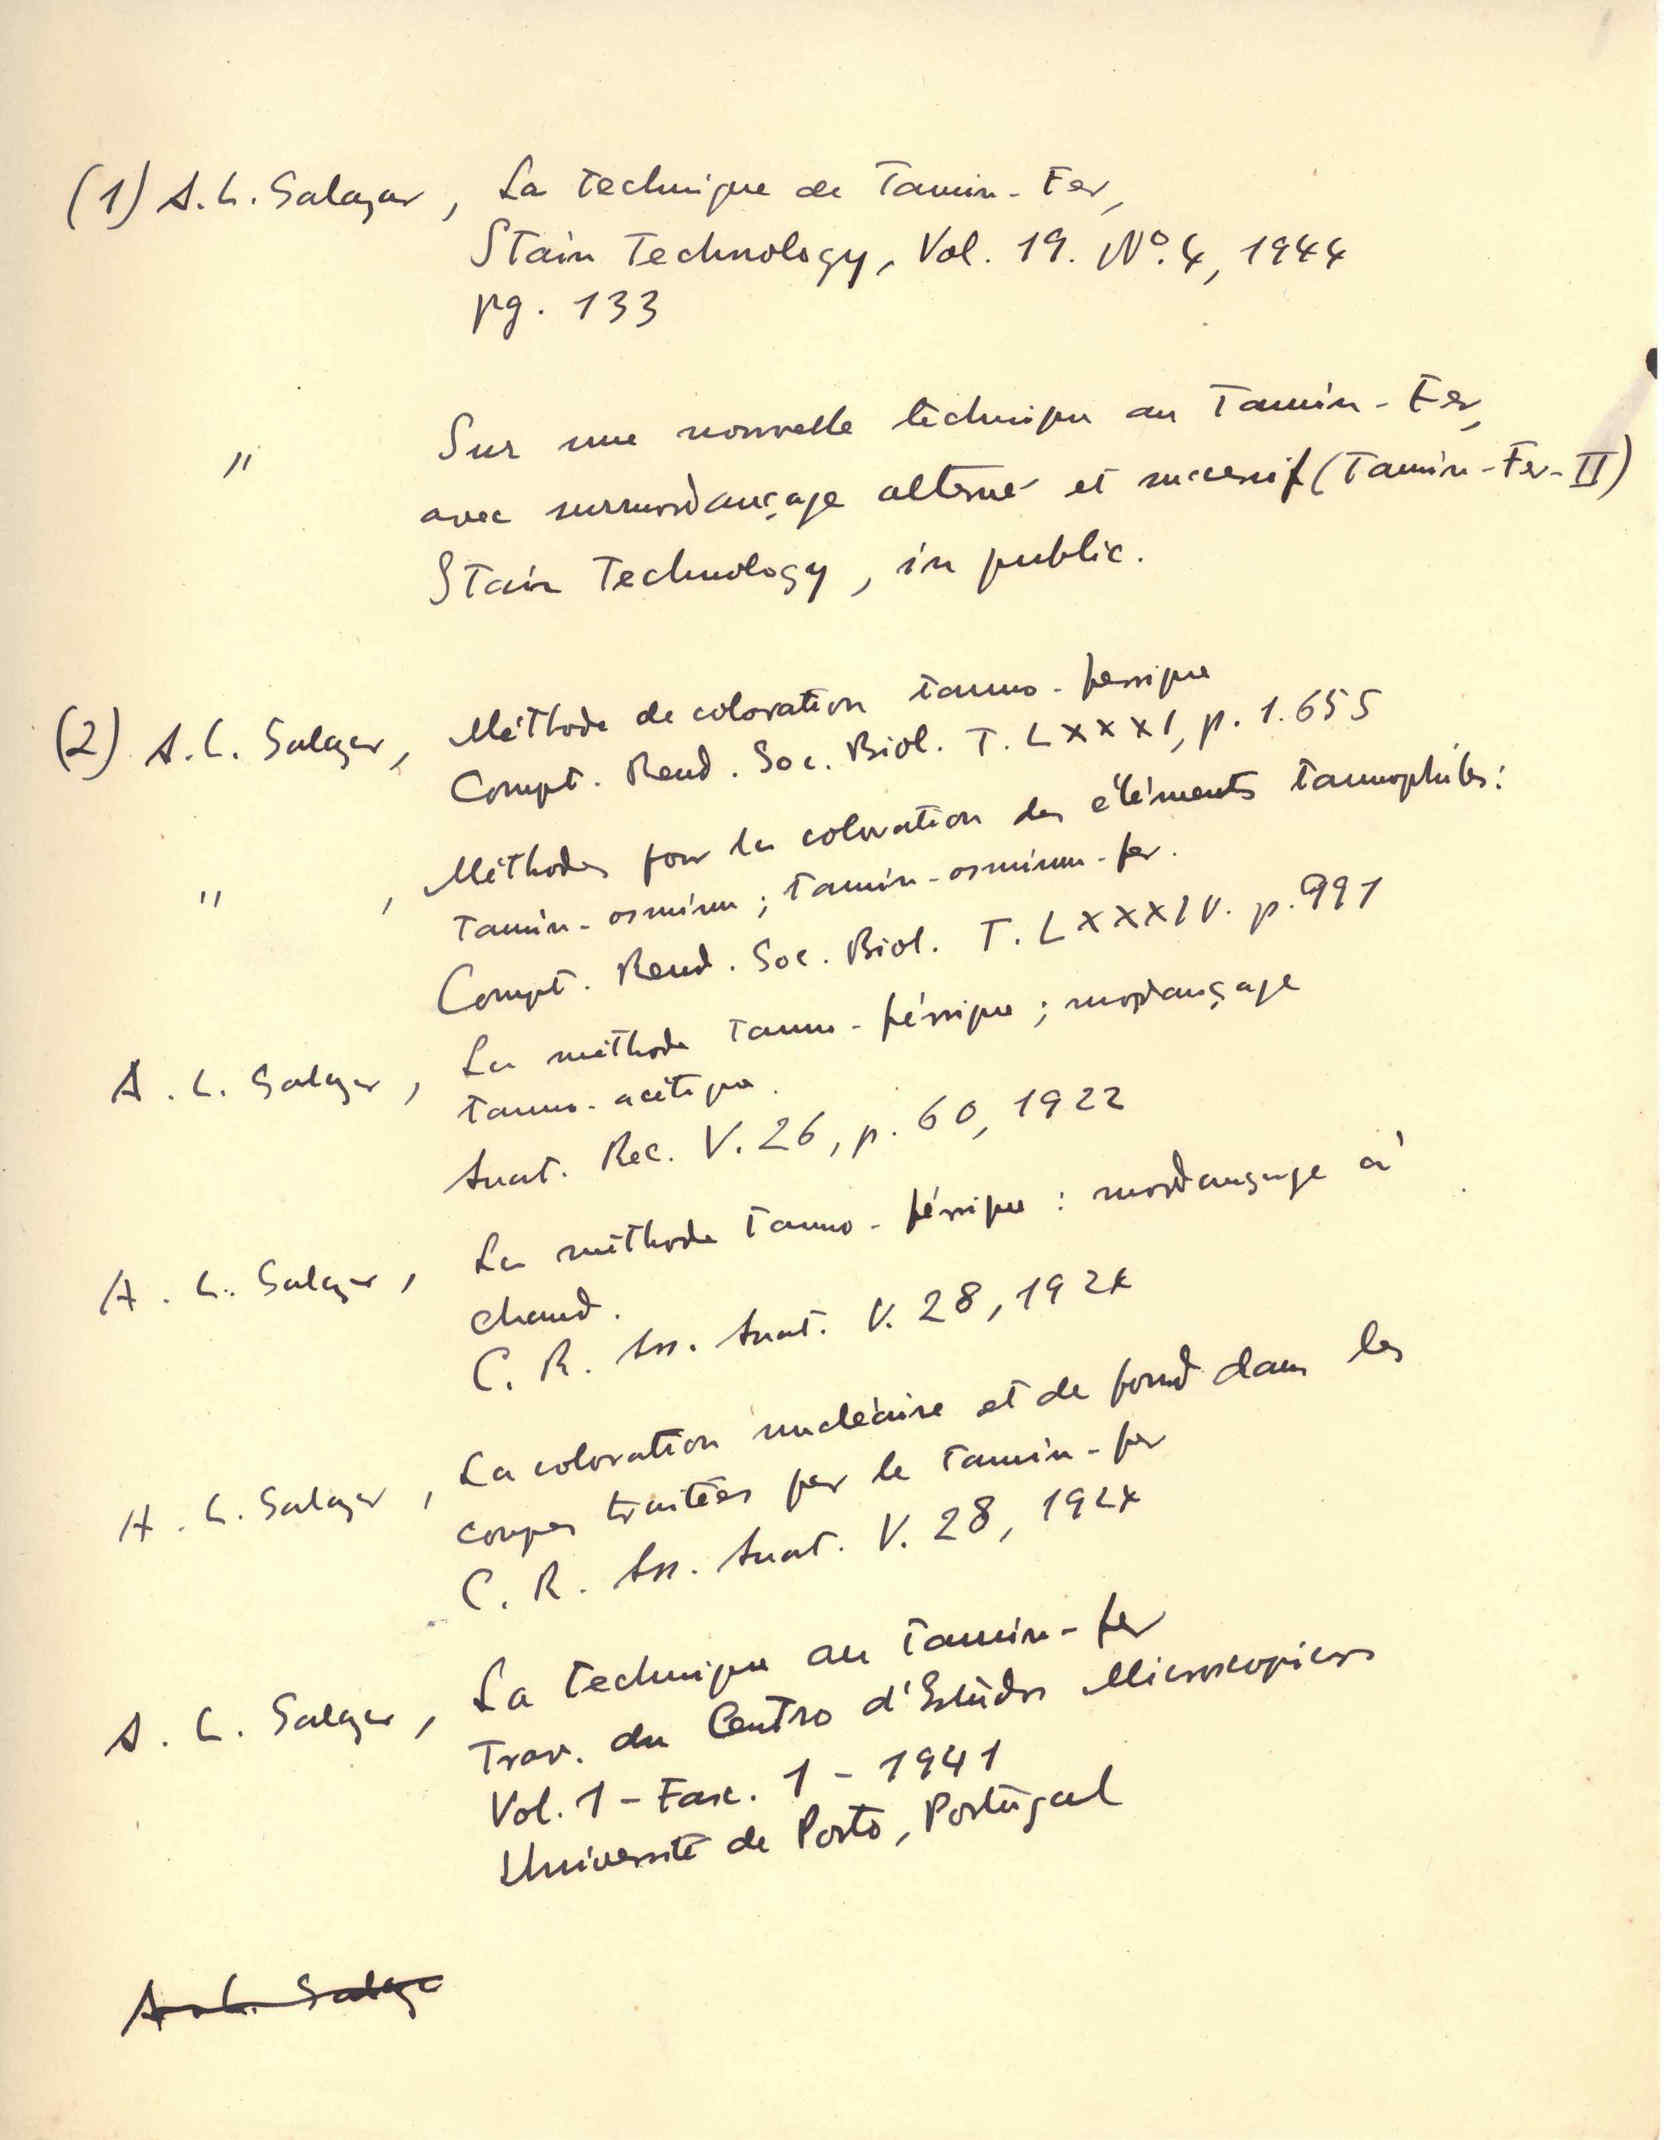 (1) A. L. Salazar, La technique de Tannin-Fer,
Stain Technology, Vol. 19. Nº. 4, 1944
pg. 133
" Sur une nouvelle technique au Tannin-Fer,
avec surmordançage alterné et successif (Tannin-Fer-II)
Stain Technology, in public.
(2) A. L. Salazar, Méthode de coloration tanno-ferrique
Compt. Rend. Soc. Biol. T. LXXXI, p. 1.655
" , Méthodes pour la coloration des éléments tannophiles:
Tannin-osmium; tannin-osmium-fer.
Compt. Rend. Soc. Biol. T. LXXXIV. p. 991
A. L. Salazar, La méthode tanno-férrique; mordançage
tanno-acétique.
Anat. Rec. V. 26, p. 60, 1922
A. L. Salazar, La méthode tanno-férrique: mordançage à
chaud.
C. R. Ass. Anat. V. 28, 1924
A. L. Salazar, La coloration nucléaire et de fond dans les
coupes traitées par le tannin-fer
C. R. Ass. Anat. V. 28, 1924
A. L. Salazar, La technique au Tannin-fer
Trav. du Centro d'Estudos Microscopicos
Vol. 1 - Fasc. 1 - 1941
Université de Porto, Portugal
A. L. Salaza